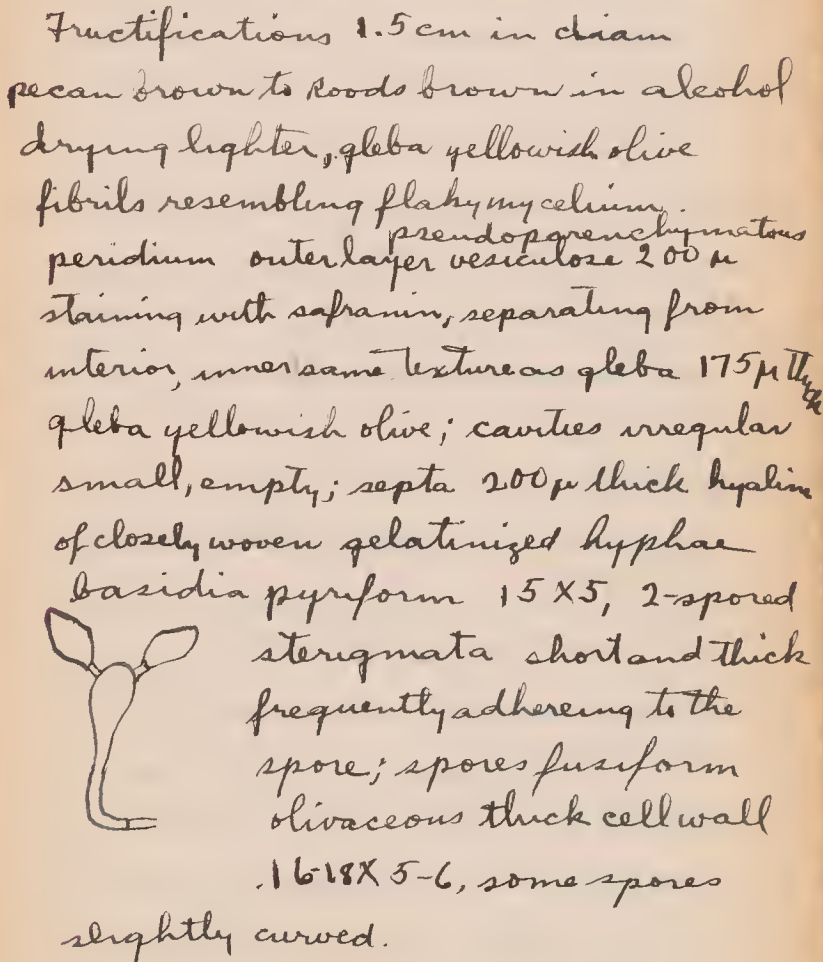 Fructifications 1.5 cm in diam
pecan brown to Roods brown in alcohol
drying lighter, gleba yellowish olive
fibrils resembling flaky mycelium.
pseudoparenchymatous
peridium outer layer vesiculose 200 µ
staining with safranin, separating from
interior, inner same texture as gleba 175 µ thick
gleba yellowish olive; cavities irregular
small, empty; septa 200 µ thick hyaline
of closely woven gelatinized hyphae
basidia pyriform 15 X 5, 2-spored
sterigmata short and thick
frequently adhereing to the
spore; spores fusiform
olivaceous thick cell wall
.16-18 X 5-6, some spores
slightly curved.